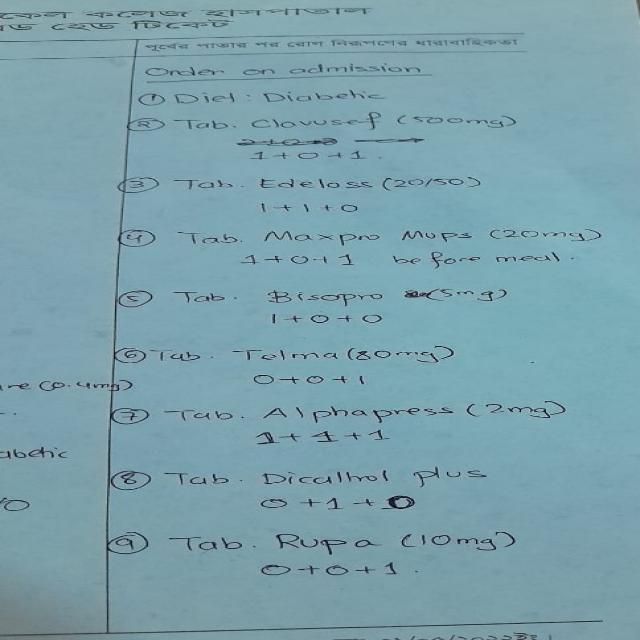 কেল কলেজ হাসপাতাল
হেড টিকেট
পূর্বের পাতার পর রোগ নিরূপণের ধারাবাহিকতা
Order on admission
① Diet : Diabetic
② Tab. Clavusef (500mg)
1+0+1.
③ Tab. Edeloss (20/50)
1+1+0
④ Tab. Maxpro Mups (20mg)
1+0+1 before meal.
⑤ Tab. Bisopro (5mg)
1+0+0
⑥ Tab. Telma (80mg)
0+0+1
re (0.4mg)
⑦ Tab. Alphapress (2mg)
1+1+1
abetic
⑧ Tab. Dicaltrol plus
0+1+0
⑨ Tab. Rupa (10mg)
0+0+1.